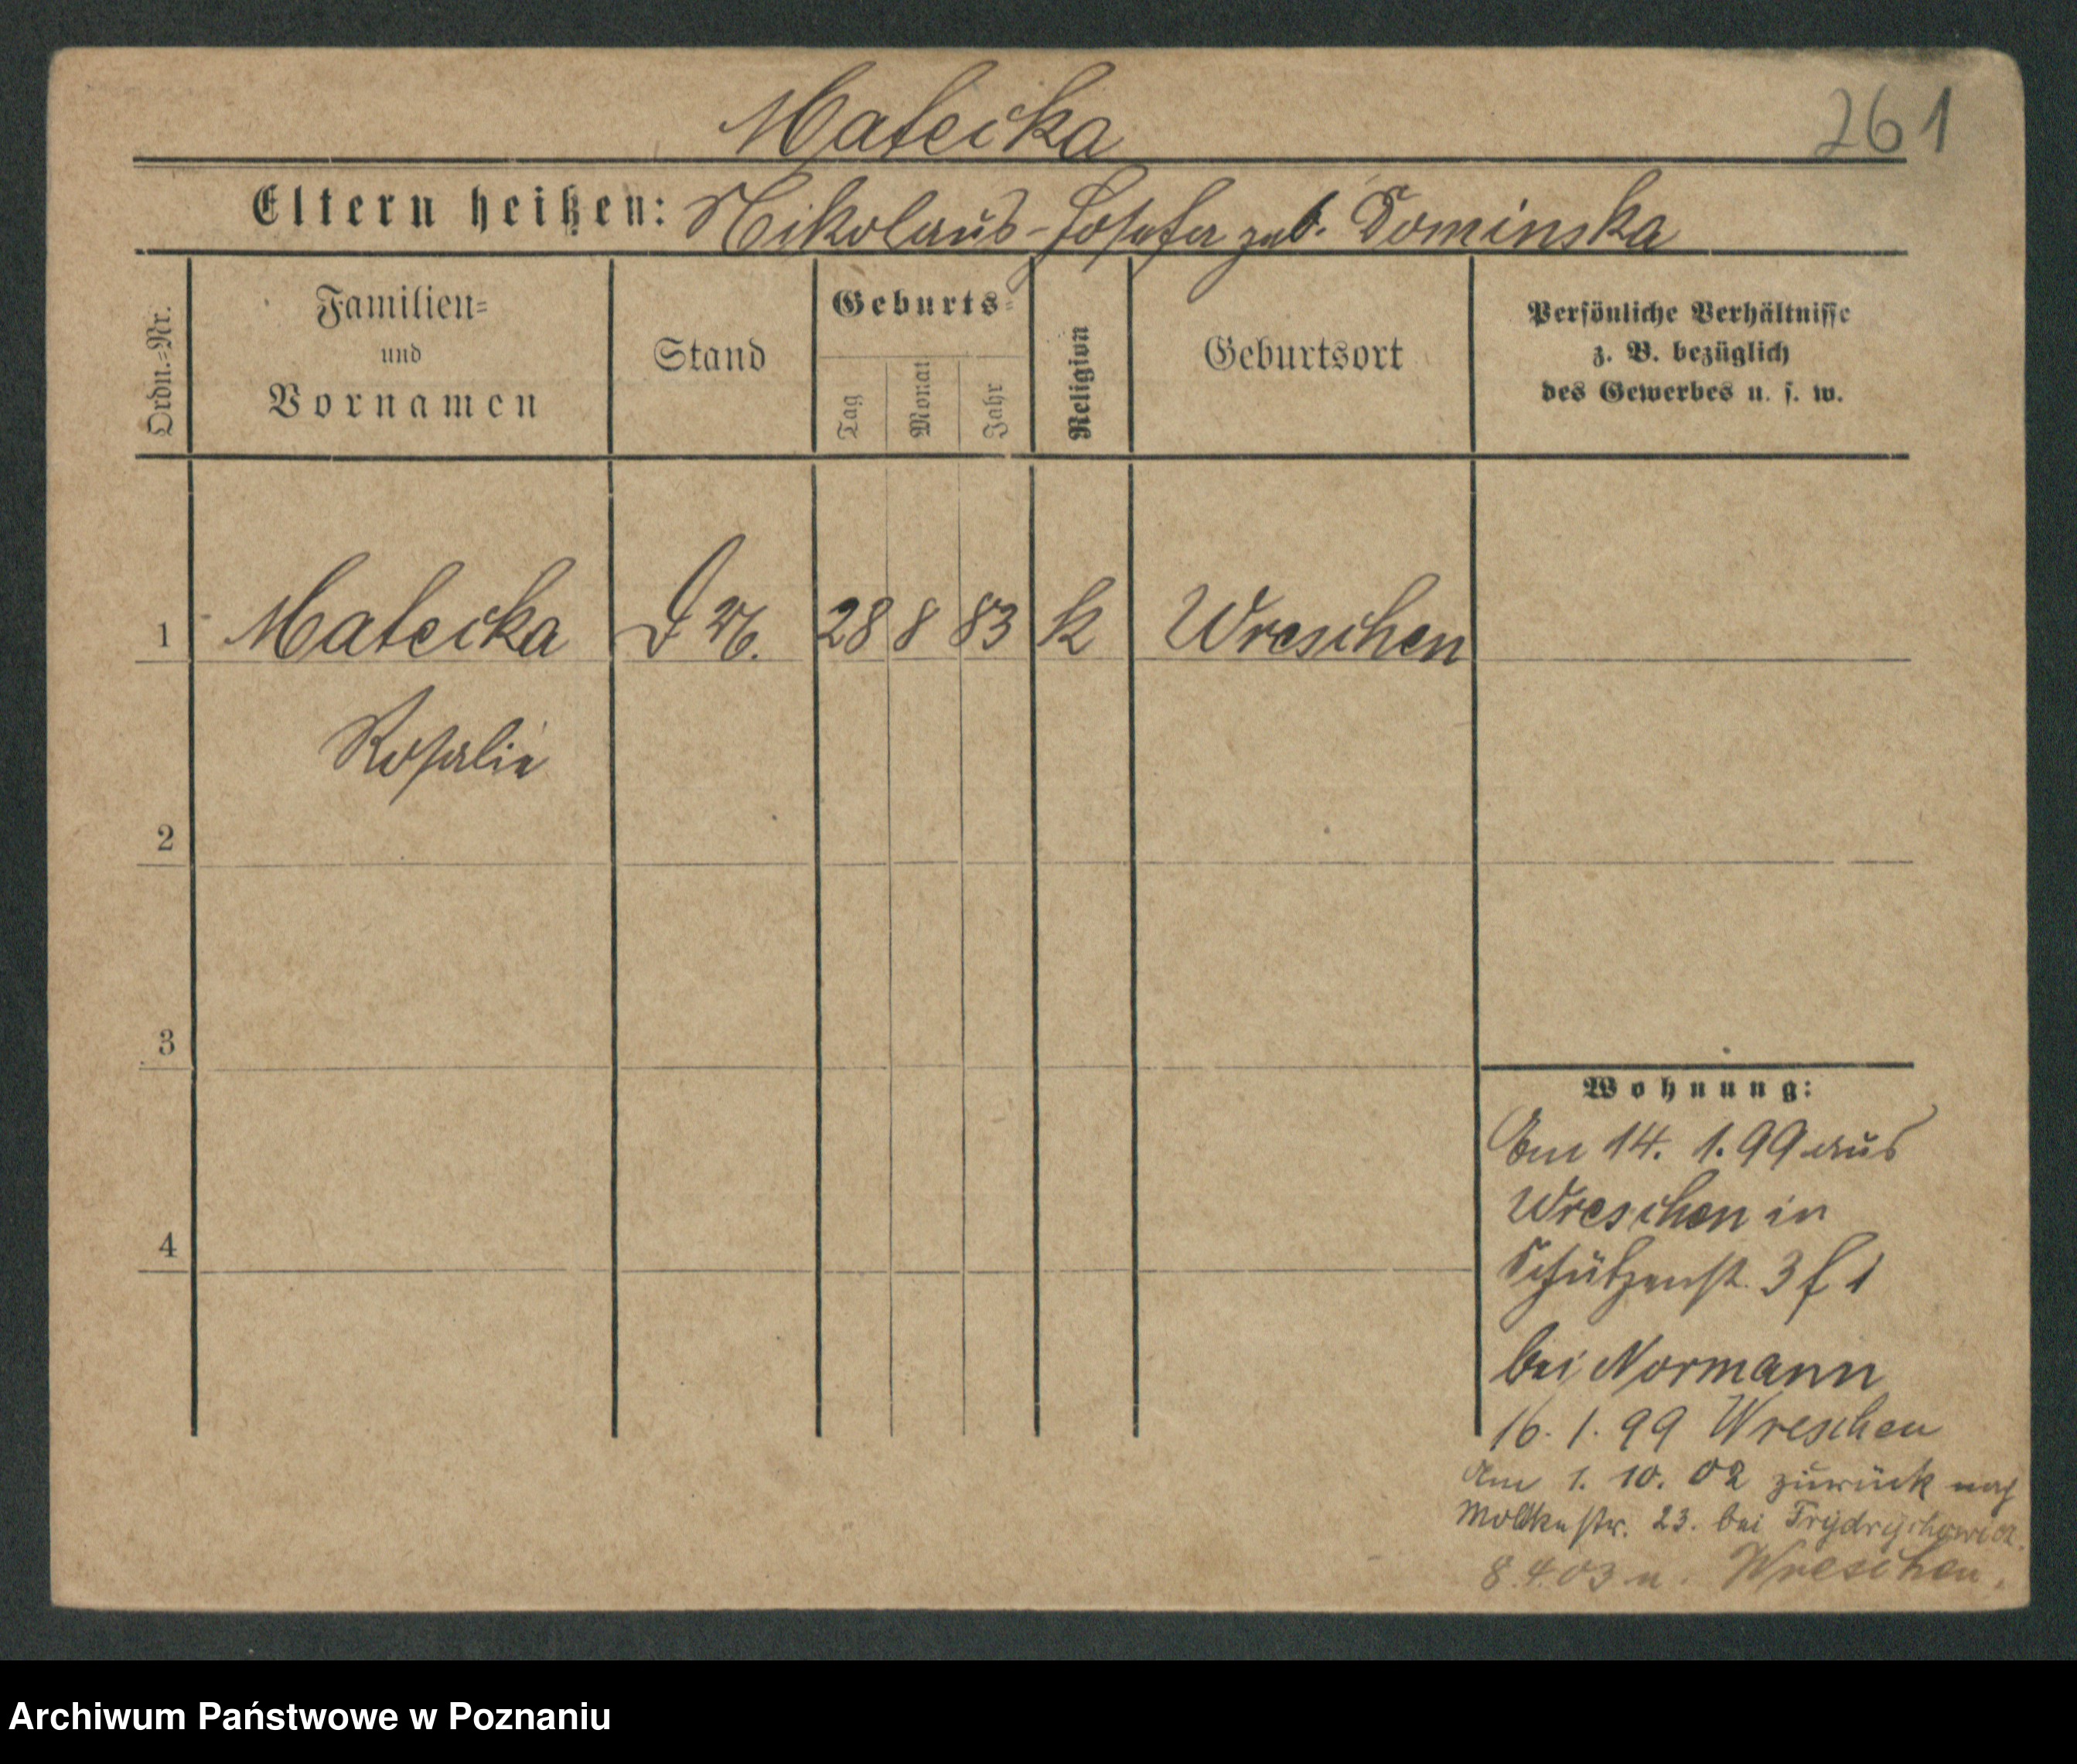 Matecka
261
Eltern heißen: Nikolaus - Josefa geb. Dominska
Ordn.-Nr.
Familien-
und
Vornamen
Stand
Geburts-
Tag
Monat
Jahr
Religion
Geburtsort
Persönliche Verhältnisse
z. B. bezüglich
des Gewerbes u. s. w.
1 Matecka 28 8 83 k Wreschen
Rosalie
2
3
4
Wohnung:
Am 14. 1. 99 aus
Wreschen in
Schützenst. 3 f 1
bei Normann
16. 1. 99 Wreschen
Am 1. 10. 02 zurück nach
Moltkestr. 23. bei Frydrychowicz.
8. 4. 03 n. Wreschen.
Archiwum Państwowe w Poznaniu